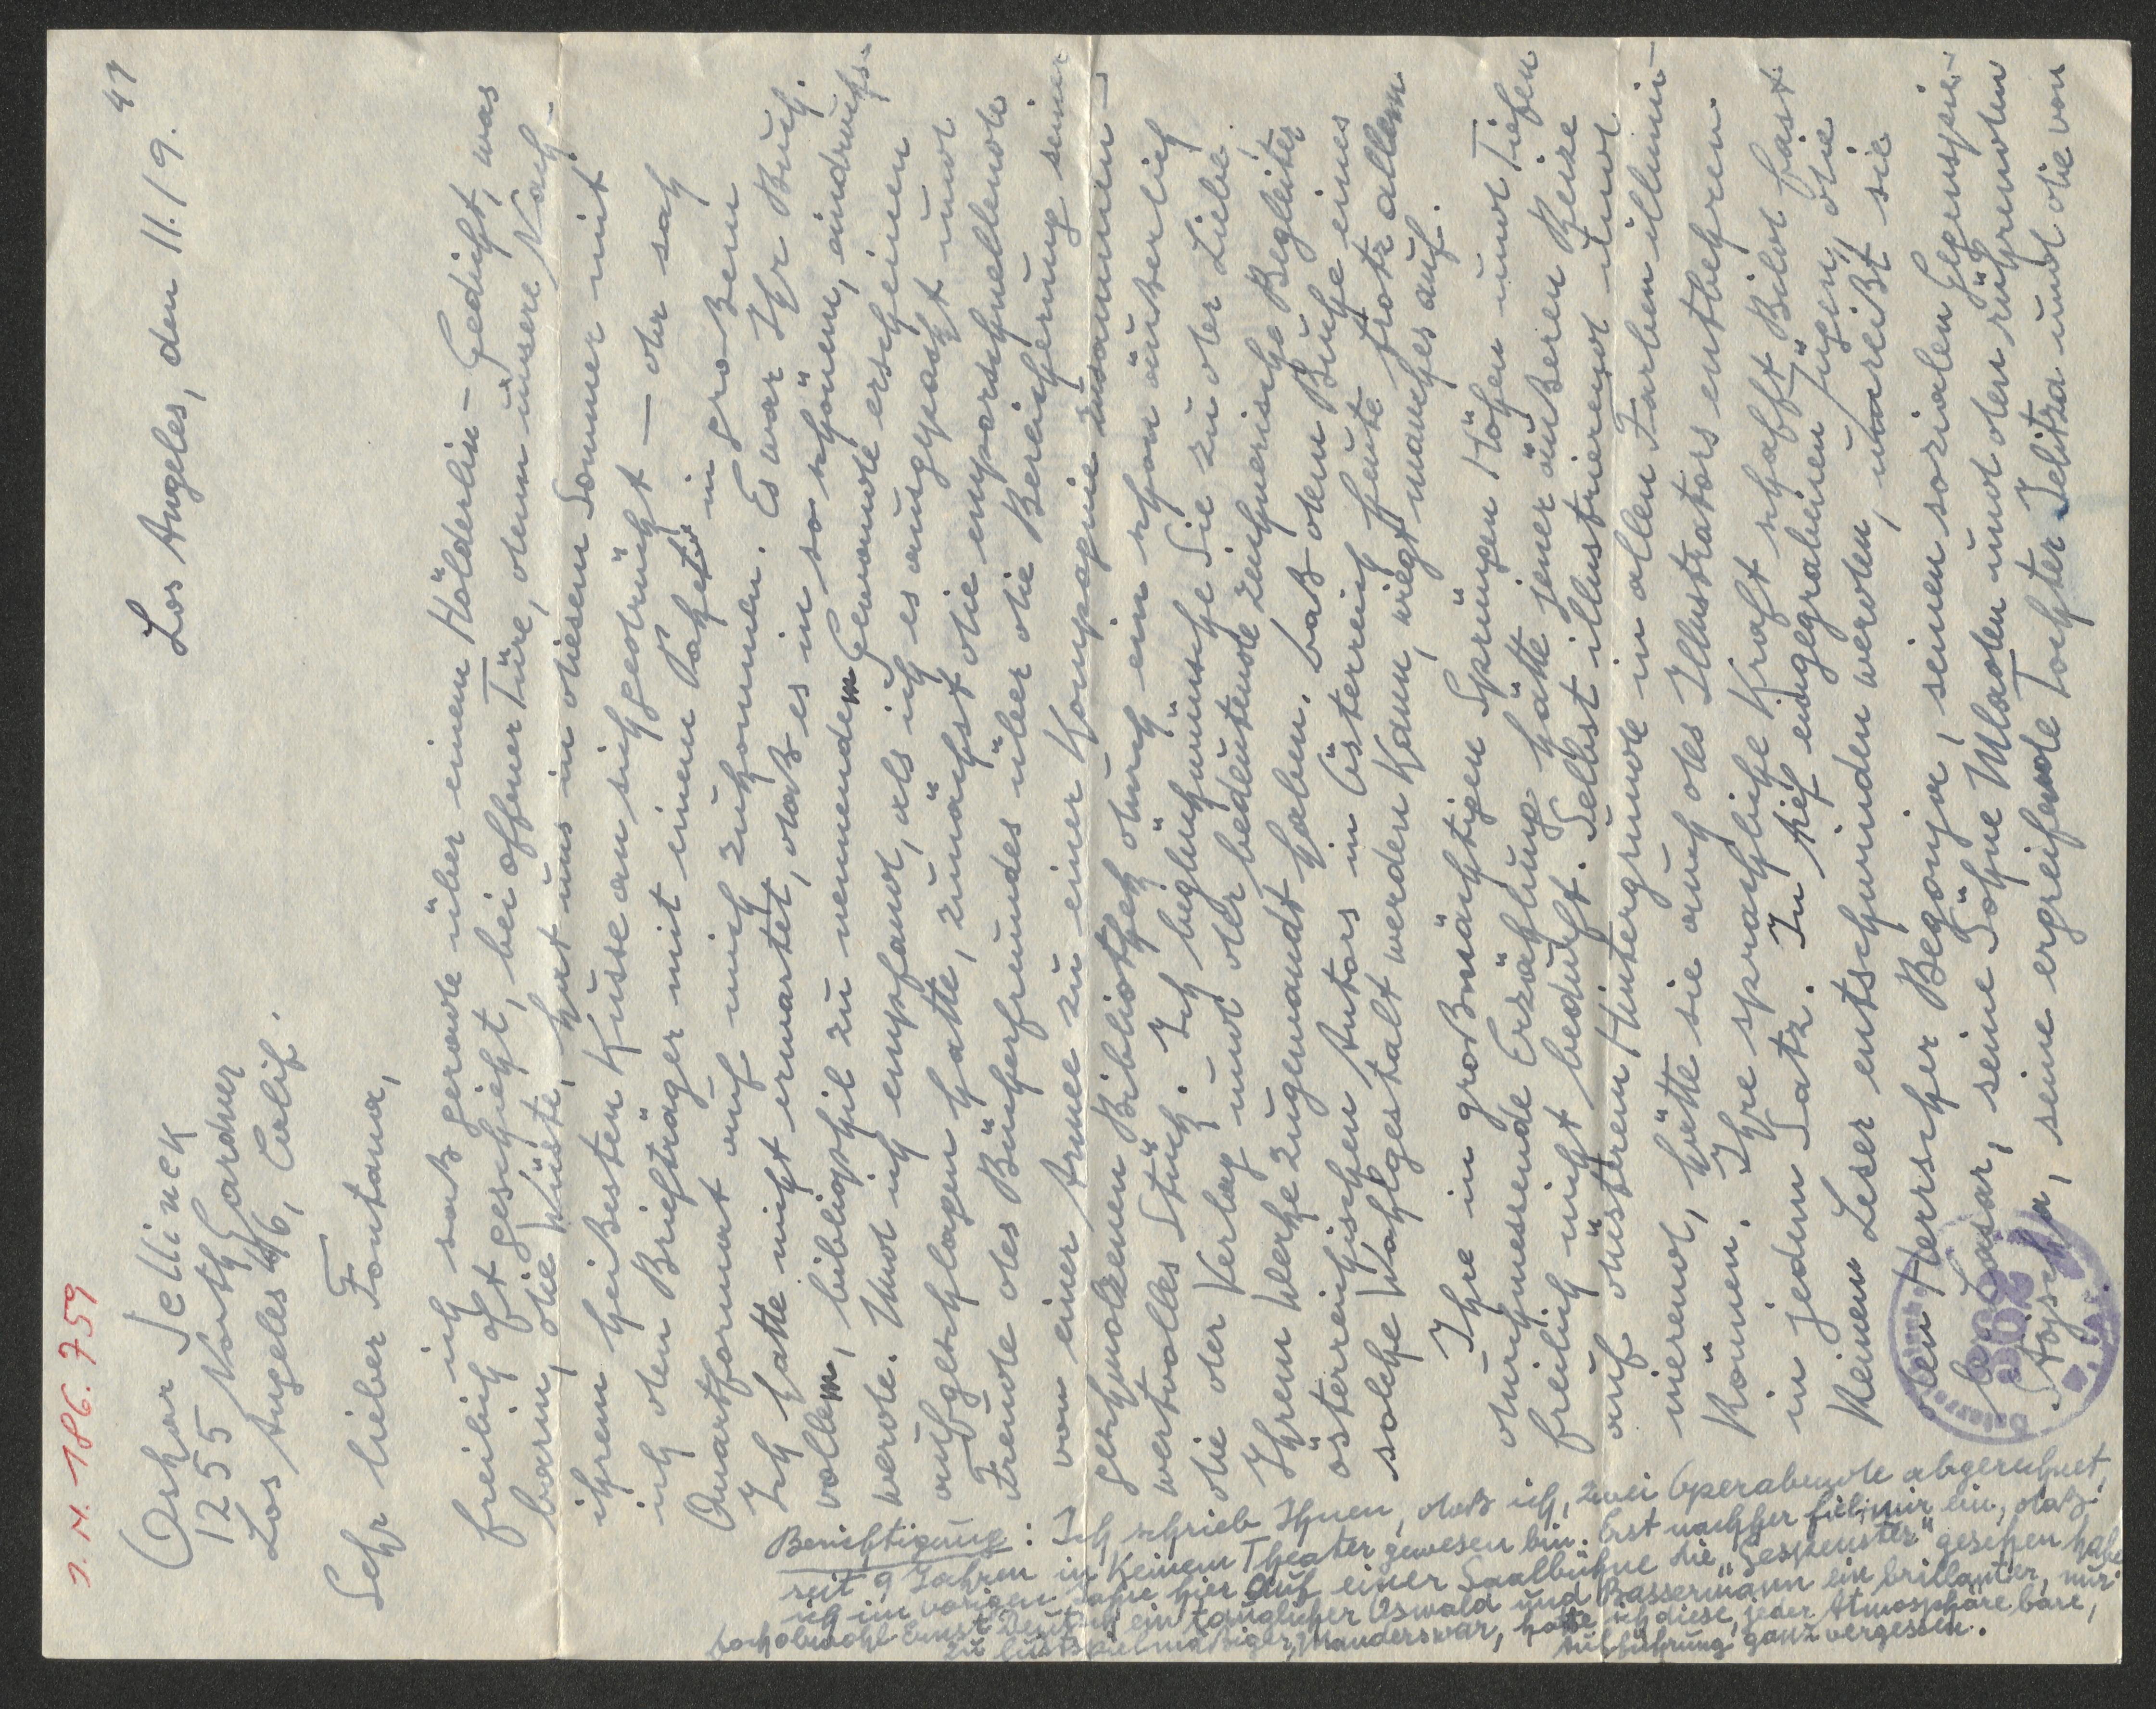 J. N. 186.759
Oskar Jellinek
1255 North Gardner
Los Angeles 46, Calif.
Los Angeles, den 11./9. 47
Sehr lieber Fontana,
ich saß gerade über einem Hölderlin-Gedicht, was
freilich oft geschieht, bei offener Türe, denn unsere Nach-
barin, die Wüste, hat uns in diesem Sommer mit
ihrem heißesten Kusse an sich gedrückt — da sah
ich den Briefträger mit einem Paket in großem
Quartformat auf mich zukommen. Es war Ihr Buch.
Ich hatte nicht erwartet, daß es in so schönem, eindrucks-
vollem, bibliophil zu nennendem Gewande erscheinen
werde. Und ich empfand, als ich es ausgepackt und
aufgeschlagen hatte, zunächst die emporschnellende
Freude des Bücherfreundes über die Bereicherung seiner
von einer Armee zu einer Kompagnie zusammen-
geschmolzenen Bibliothek durch ein schon äußerlich
wertvolles Stück. Ich beglückwünsche Sie zu der Liebe,
die der Verlag und der bedeutende zeichnerische Begleiter
Ihrem Werke zugewandt haben. Daß dem Buche eines
österreichischen Autors in Österreich heute trotz allem
solche Wohlgestalt werden kann, wiegt manches auf.
Ihre in großmächtigen Sprüngen Höhen und Tiefen
durchmessende Erzählung hätte jener äußeren Reize
freilich nicht bedurft. Selbst illustrierend und
auf düsterem Hintergrunde in allen Farben illumi-
nierend, hätte sie auch des Illustrators entbehren
können. Ihre sprachliche Kraft schafft Bild fast
in jedem Satz. In tief eingegrabenen Zügen, die
keinem Leser entschwinden werden, umreißt sie
den Herrscher Begonja, seinen sozialen Gegenspie-
ler Lasar, seine Söhne Mladen und den rührenden
Aljoscha, seine ergreifende Tochter Jelitza und die von
Berichtigung: Ich schrieb Ihnen, daß ich, zwei Operabende abgerechnet,
seit 9 Jahren in keinem Theater gewesen bin. Erst nachher fiel mir ein, daß
ich im vorigen Jahre hier auf einer Saalbühne die „Gespenster" gesehen habe.
Doch obwohl Ernst Deutsch ein tauglicher Oswald und Bassermann ein brillanter, nur
zu lustspielmäßiger Manders war, hatte ich diese, jeder Atmosphäre bare,
Aufführung ganz vergessen.